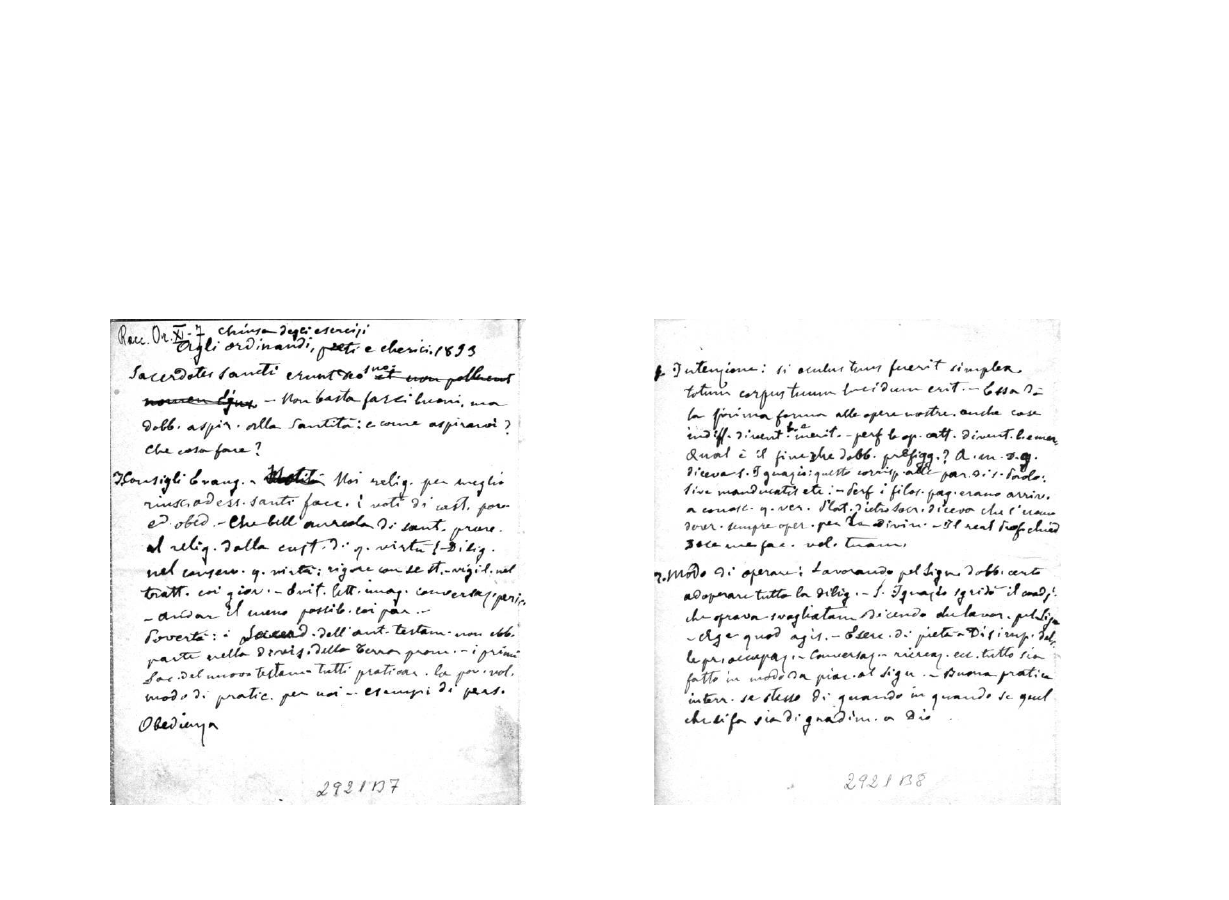 Racc. Or. XI-7 Chiusa degli esercizi
Agli ordinandi, preti e cherici. 1893
Sacerdotes sancti erunt suis et non polluent
nomen ejus – Non basta farsi buoni, ma
dobb. aspir. alla Santità: e come aspirarvi?
Che cosa fare?
1. Consigli Evang. – Noi relig. per meglio
riusc. ad ess. santi facc. i voti di cast. pov.
ed obed. – Che bell'aureola di sant. prove.
al relig. dalla cust. di q. virtù! – Dilig.
nel conserv. q. virtù: rigore con se st. – vigil. nel
tratt. coi giov. – Evit. lett. imag. conversaz. peric.
– andar il meno possib. coi par. –
Povertà: i Sacerd. dell'ant. testam. non ebb.
parte nella divis. della terra prom. – i primi
Sac. del nuovo testam. tutti praticar. la pov. vol.
modo di pratic. per noi – esempi di pers.
Obedienza
2921B7
Intenzione: si oculus tuus fuerit simplex
totum corpus tuum lucidum erit. – Essa dà
la prima forma alle opere nostre. anche cose
indiff. divent. merit. – perf le op. catt. divent.
Qual è il fine che dobb. prefigg.? A. m. D. g.
diceva S. Ignazio: questo corrisp. alle par. di S. Paolo:
sive manducatis etc: – Perf i filos. pag. erano arriv.
a conosc. q. ver. Plat. dietro Socr. diceva che l'uomo
dover. sempre oper. per la Divin. – Il real Prof chied
doce me fac. vol. tuam.
3. Modo di operare: Lavorando pel Sign. dobb. certo
adoperare tutta la dilig. – S. Ignazio sgridò il coadj.
che oprava svogliatam. dicendo de lavor. pel Sign
– Age quod agis. – Eserc. di pietà – Disimp. del
le preoccupaz. – Conversaz. – ricreaz. ecc. tutto sia
fatto in modo da piac. al Sign. – Buona pratica
interr. se stesso di quando in quando se quel
che si fa sia di gradim. a Dio
2921B8